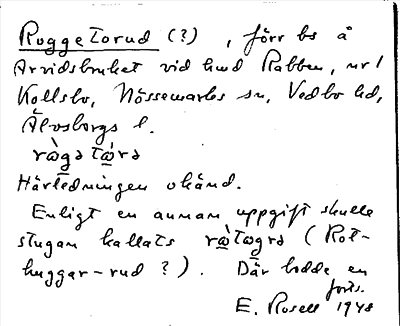 Ruggetorud (?), förr bs å
Arvidsbruket vid hmd Rabben, nr 1
Kollsbo, Nössemarks sn, Vedbo hd,
Älvsborgs l.
rògə tɷ̀rə
Härledningen okänd.
Enligt en annan uppgift skulle
stugan kallats (Rot-
huggar-rud ?). Där bodde en
forts.
E. Rosell 1948